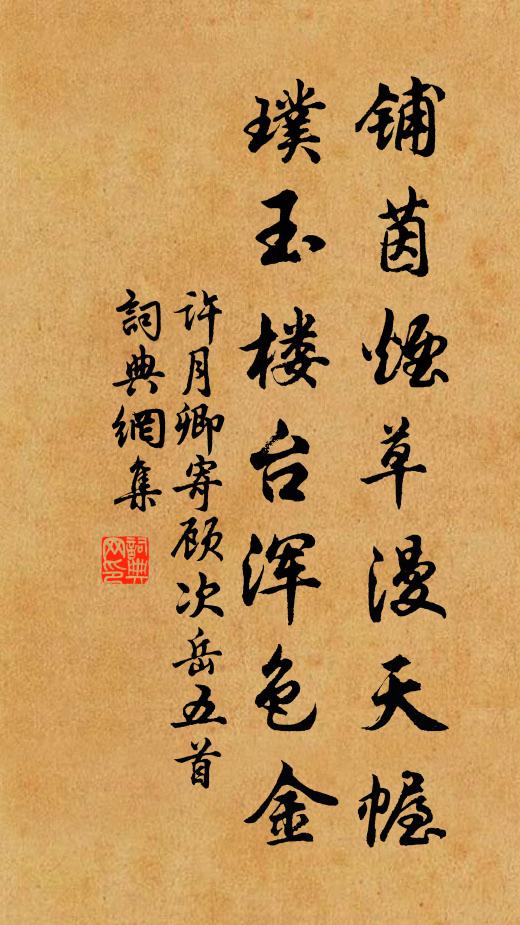 铺茵烟草漫天幄
璞玉楼台浑色金
許月卿寄顾次岳五首
詞典網集
詞典网印